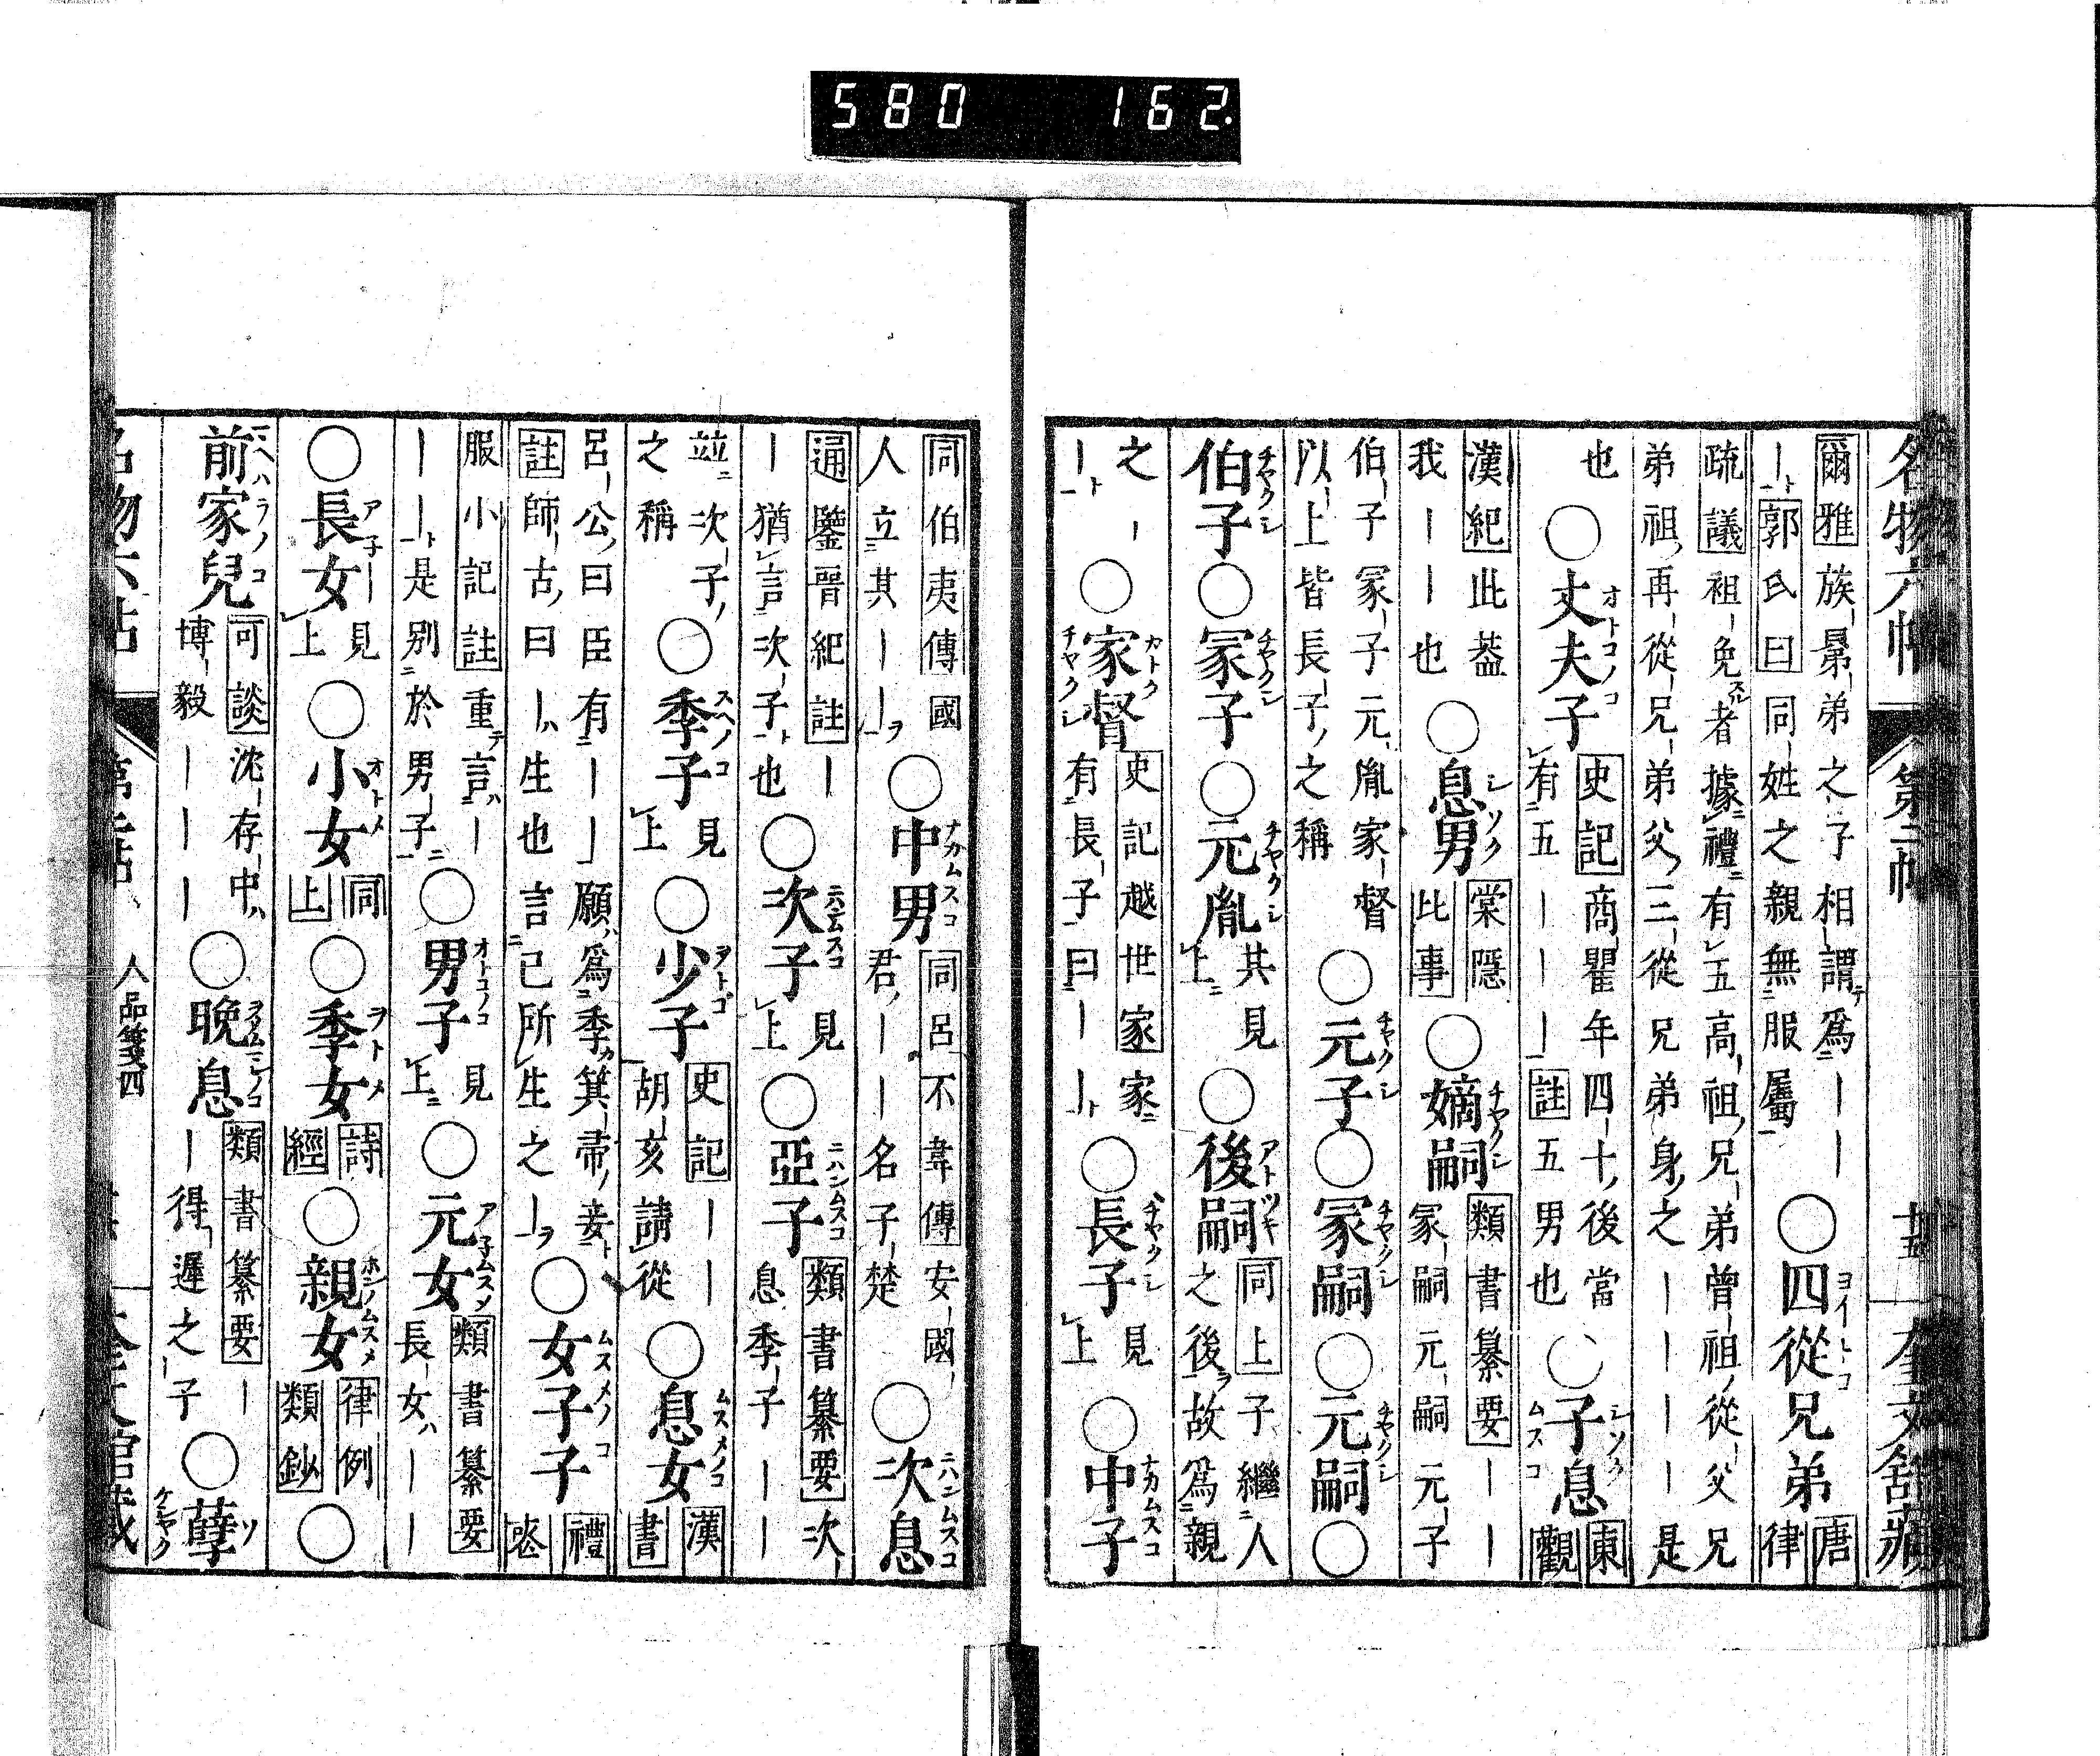 580 162.
名物六帖 第二帖 奎文舘藏
爾雅族晜弟之子相謂爲｜｜
｜郭氏曰同姓之親無服屬
○四從兄弟 唐律
疏議袒免者據禮有五高祖兄弟曾祖從父兄
弟祖再從兄弟父三從兄弟身之｜｜｜｜是
也○丈夫子 史記商瞿年四十後當
有五｜｜｜註五男也
○子息 東觀
漢紀此葢
我｜｜也
○息男 棠隱比事
○嫡嗣 類書纂要｜｜
冢嗣元嗣元子
伯子冢子元胤家督
以上皆長子之稱
○元子○冢嗣○元嗣○
伯子○冢子○元胤 其見上
○後嗣 同上子繼人
之後故爲親
之｜
｜
○家督 史記越世家家
有長子曰｜｜
○長子 見上
○中子
同伯夷傳國
人立其｜｜
○中男 同呂不韋傳安國
君｜｜名子楚
○次息
通鑒晉紀註｜
｜猶言次子也
○次子 見上
○亞子 類書纂要次
息季子｜｜
竝次子
之稱
○季子 見上
○少子 史記｜｜
胡亥請從
○息女 漢書
呂公曰臣有｜｜願爲季箕帚妾
註師古曰｜生也言已所生之｜
○女子子 禮喪
服小記註重言｜
｜｜是别於男子
○男子 見上
○元女 類書纂要
長女｜｜
○長女 見上
○小女 同上
○季女 詩經
○親女 律例類鈔
○
前家兒 可談沈存中
博毅｜｜｜
○晩息 類書纂要｜
｜得遲之子
○孽
人品箋四